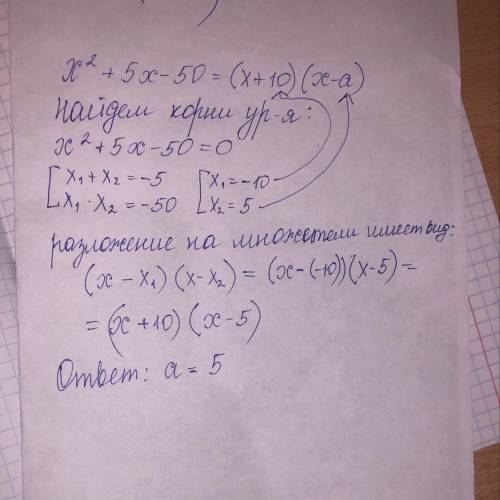 x² + 5x - 50 = (x+10)(x-a)
Найдем корни ур-я:
x² + 5x - 50 = 0
[x₁ + x₂ = -5 [x₁ = -10
x₁ · x₂ = -50 x₂ = 5
разложение на множетели имеет вид:
(x - x₁)(x - x₂) = (x - (-10))(x - 5) =
= (x + 10)(x - 5)
Ответ: a = 5